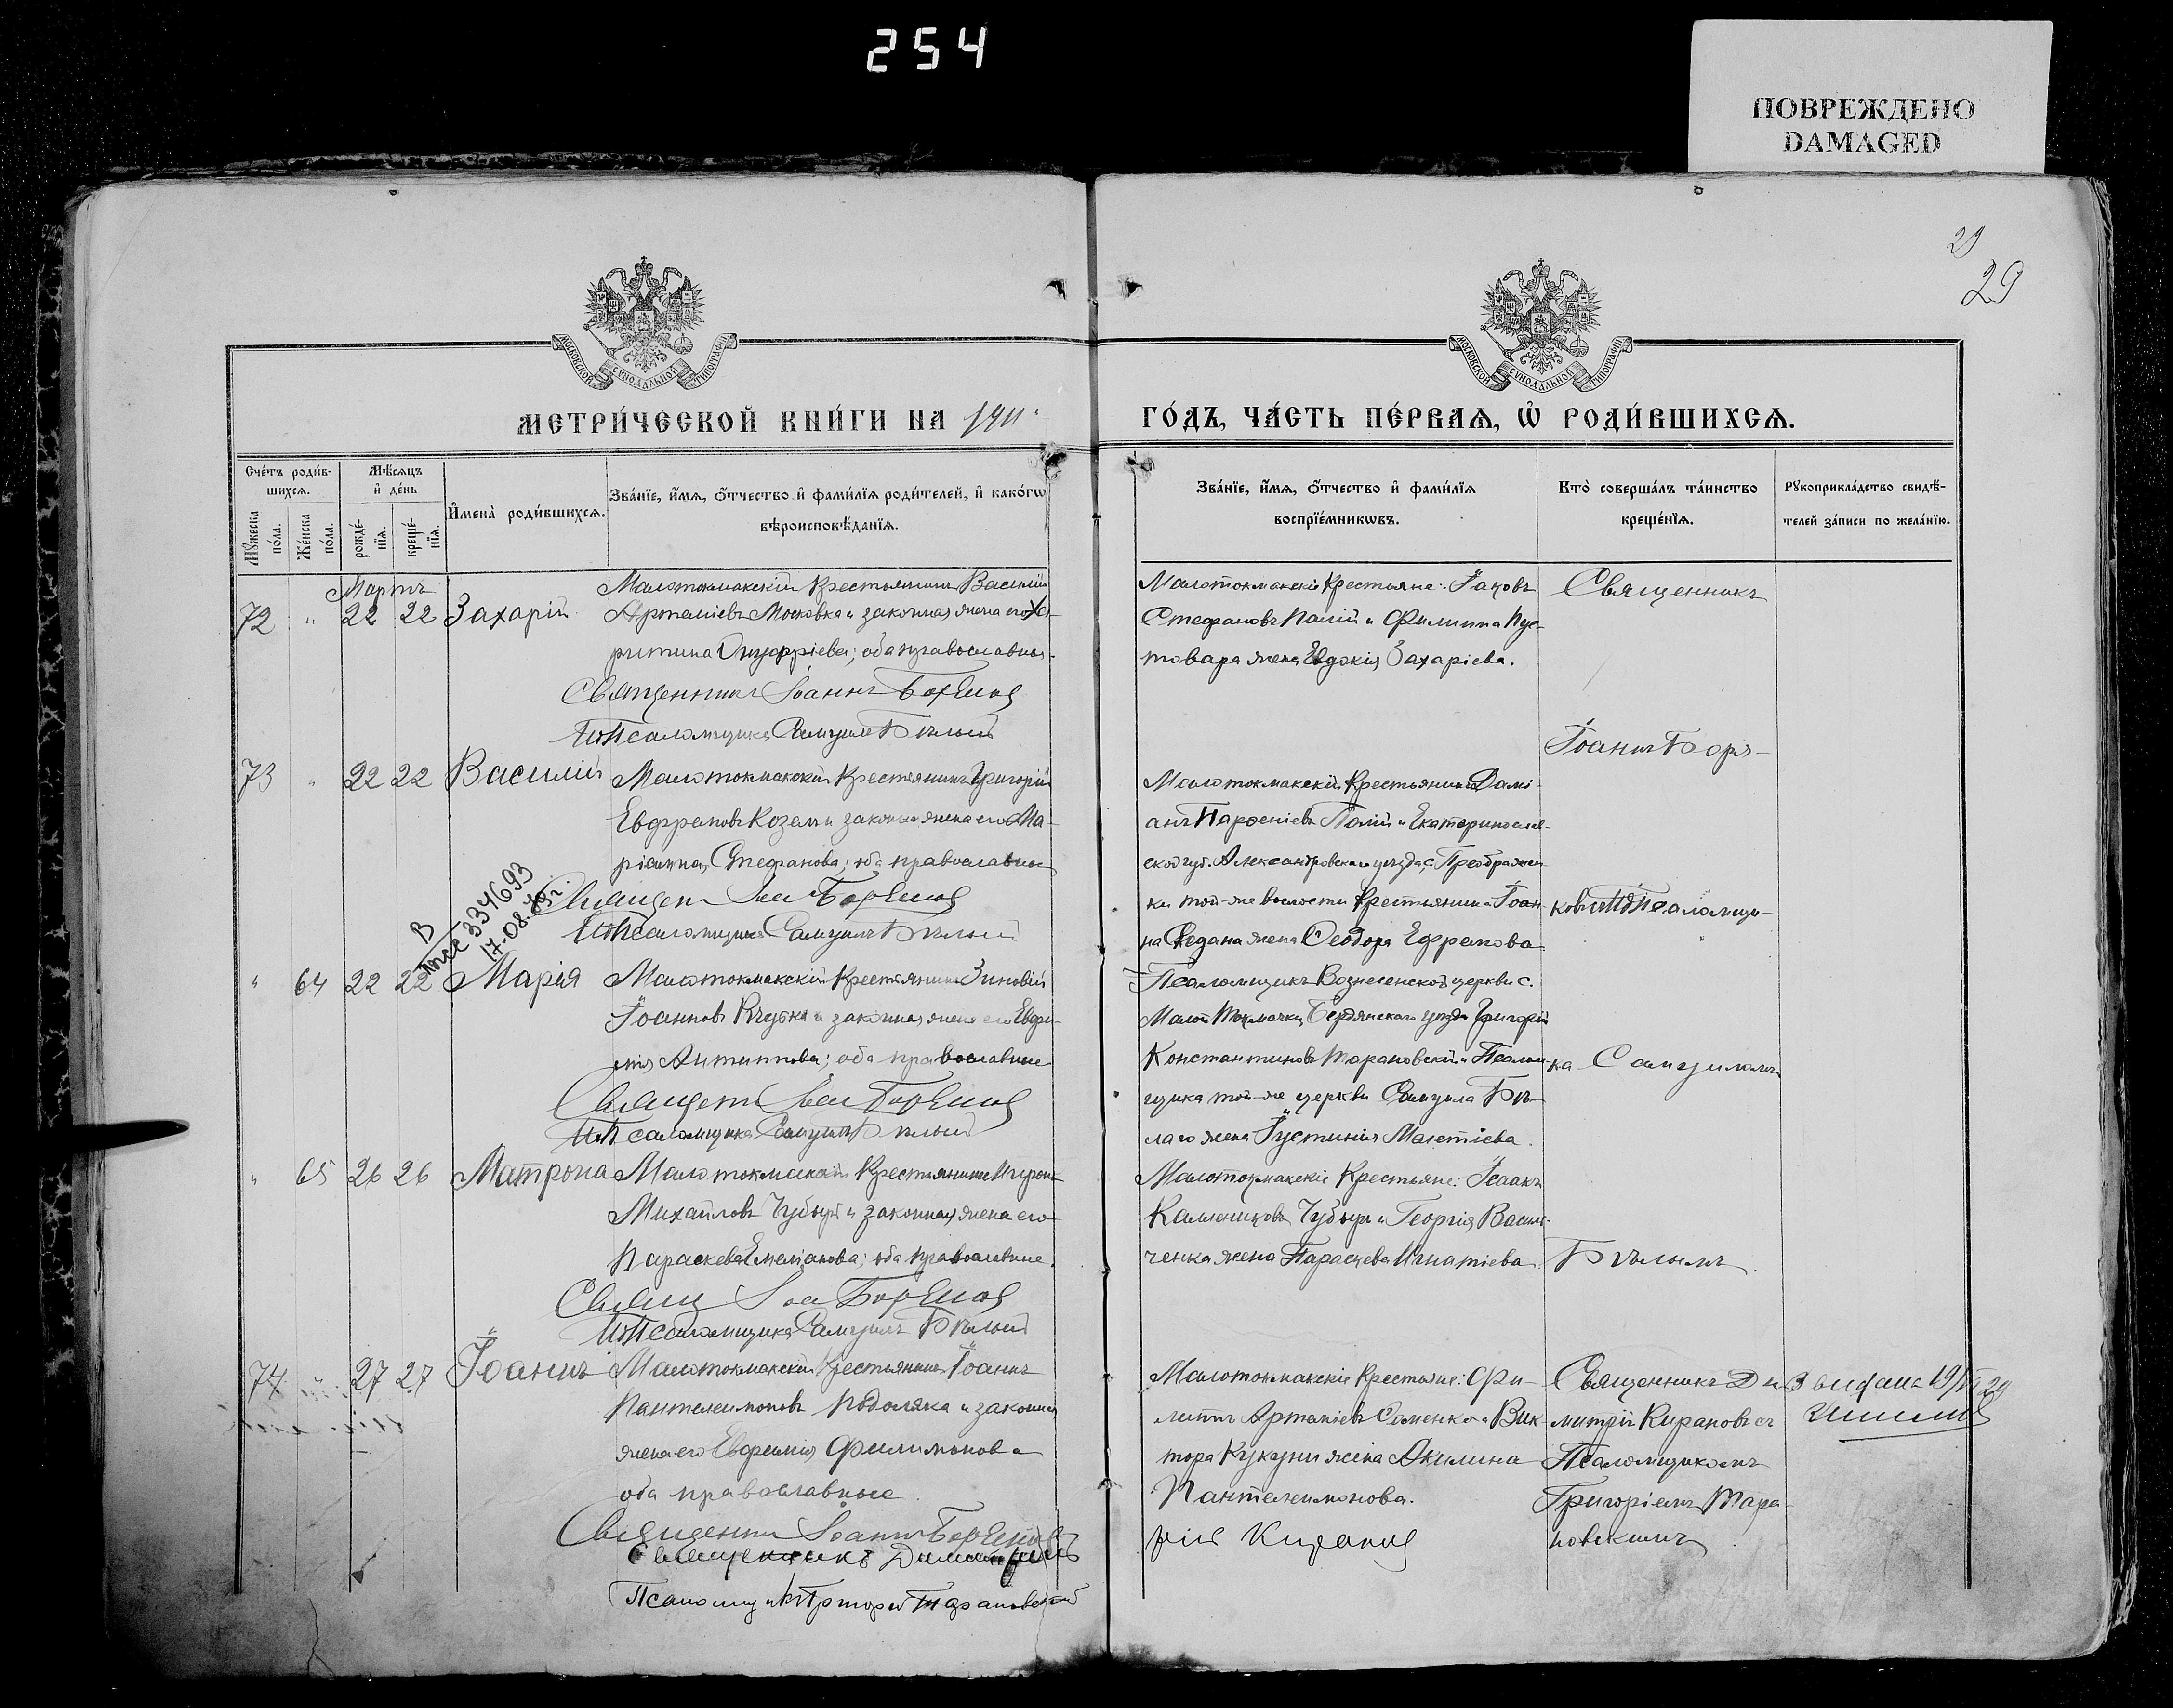 254
ПОВРЕЖДЕНО
DAMAGED
29
29
МОСКОВСКОЙ СѴНОДАЛЬНОЙ ТИПОГРАФІИ
МОСКОВСКОЙ СѴНОДАЛЬНОЙ ТИПОГРАФІИ
МЕТРИ́ЧЕСКОЙ КНИ́ГИ НА 1911
ГО́ДЪ, ЧА́СТЬ ПЕ́РВАѦ, Ѡ҆ РОДИ́ВШИХСѦ.
Сче́тъ роди́в-
шихсѧ.
Мѣ́сѧцъ
и҆ де́нь
Мꙋ́жеска
по́ла.
Же́нска
по́ла.
рожде́-
нїѧ.
креще́-
нїѧ.
И҆мена̀ роди́вшихсѧ.
Зва́нїе, и҆́мѧ, ѻ҆́тчество и҆ фами́лїѧ роди́телей, и҆ како́гѡ
вѣроисповѣ́данїѧ.
Зва́нїе, и҆́мѧ, ѻ҆́тчество и҆ фами́лїѧ
воспрїе́мникѡвъ.
Кто̀ соверша́лъ та́инство
креще́нїѧ.
Рꙋкоприкла́дство свидѣ́-
телей за́писи по жела́нїю.
Мартъ
72 " 22 22 Захарій
Малотокмакскій Крестьянинъ Василій
Артеміевъ Московка и законная жена его Ха-
ритина Онуфріева; оба православные.
Священникъ Іоаннъ
И.д. Псаломщика Самуилъ Бѣлый
Малотокмакскіе Крестьяне: Іаковъ
Стефановъ Палій и Филиппа Пус-
товара жена Евдокія Захаріева.
Священникъ
Іоаннъ Боря-
73 " 22 22 Василій
Малотокмакскій Крестьянинъ Григорій
Евфремовъ Козелъ и законная жена его Ма-
ріанна Стефанова; оба православные
И.д. Псаломщика Самуилъ Бѣлый
Малотокмакскій Крестьянинъ Дамі-
анъ Парфеніевъ Палій и Екатеринослав-
ской губ. Александровскаго уѣзда, с. Преображен-
ки той-же волости Крестьянина Іоан-
на жена Феодора Ефремова
ковъ и Псаломщи-
В
334693
17.08.
" 64 22 22 Марія
Малотокмакскій Крестьянинъ Зиновій
Іоанновъ и законная жена его Евфи-
мія Антипова; оба православные
И.д. Псаломщика Самуилъ Бѣлый
Псаломщикъ Вознесенской церкви с.
Малой Токмачки, Бердянскаго уѣзда Григорій
Константиновъ Тарановскій и Псалом-
щика той-же церкви Самуила Бѣ-
лаго жена Іустинія
ка Самуиломъ
" 65 26 26 Матрона
Малотокмакскій Крестьянинъ
Михайловъ Чубырь и законная жена его
Параскева Емеліанова; оба православные.
И.д. Псаломщика Самуилъ Бѣлый
Малотокмакскіе Крестьяне: Исаакъ
Чубырь и Георгія Васил-
ченка жена Параскева Игнатіева
Бѣлымъ.
74 " 27 27 Іоаннъ
Малотокмакскій Крестьянинъ Іоаннъ
Пантелеимоновъ Подоляка и законная
жена его Евфимія Филимонова
оба православные.
Священникъ Іоаннъ
Священникъ Димит
Псаломщикъ Григорій Тарановскій
Малотокмакскіе Крестьяне: Фи-
липпъ Артеміевъ Саменко и Вик-
тора Кукуни жена Акилина
Пантелеимонова.
рій Кирановъ
Священникъ Ди-
митрій Кирановъ съ
Псаломщикомъ
Григоріемъ Тара-
новскимъ